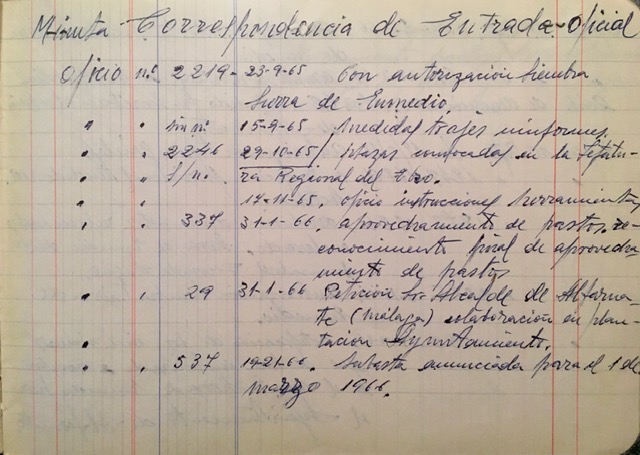 Minuta Correspondencia de Entrada-Oficial
Oficio nº 2219- 23-9-65 Con autorización Siembra
Sierra de Enmedio.
" " sin nº 15-9-65 Medidas trajes uniformes.
" " 2246 29-10-65/ plazas convocadas en la Jefatu-
" " S/n. ra Regional del Ebro.
17-11-65. oficio instrucciones herramientas
" " 337 31-1-66. aprovechamiento de pastos, re-
conocimiento final de aprovecha
miento de pastos
" " 29 31-1-66 Petición Sr. Alcalde de Alfarna-
te (Málaga) colaboración en plan-
" tacion Ayuntamiento.
" " 537 19-21-66. Subasta anunciada para el 1 de
marzo 1966.